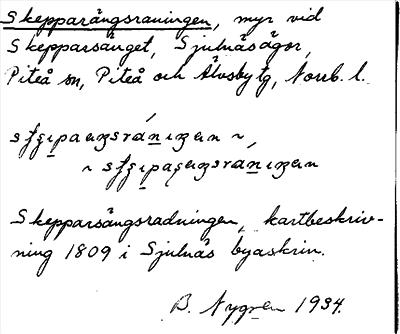 Skepparängsraningen, myr vid
Skepparsänget, Sjulnäs ägor,
Piteå sn, Piteå och Älvsby tg, Norrb. l.
Skepparsängsradningen, kartbeskriv-
ning 1809 i Sjulnäs byaskrin.
B. Nygren 1934.